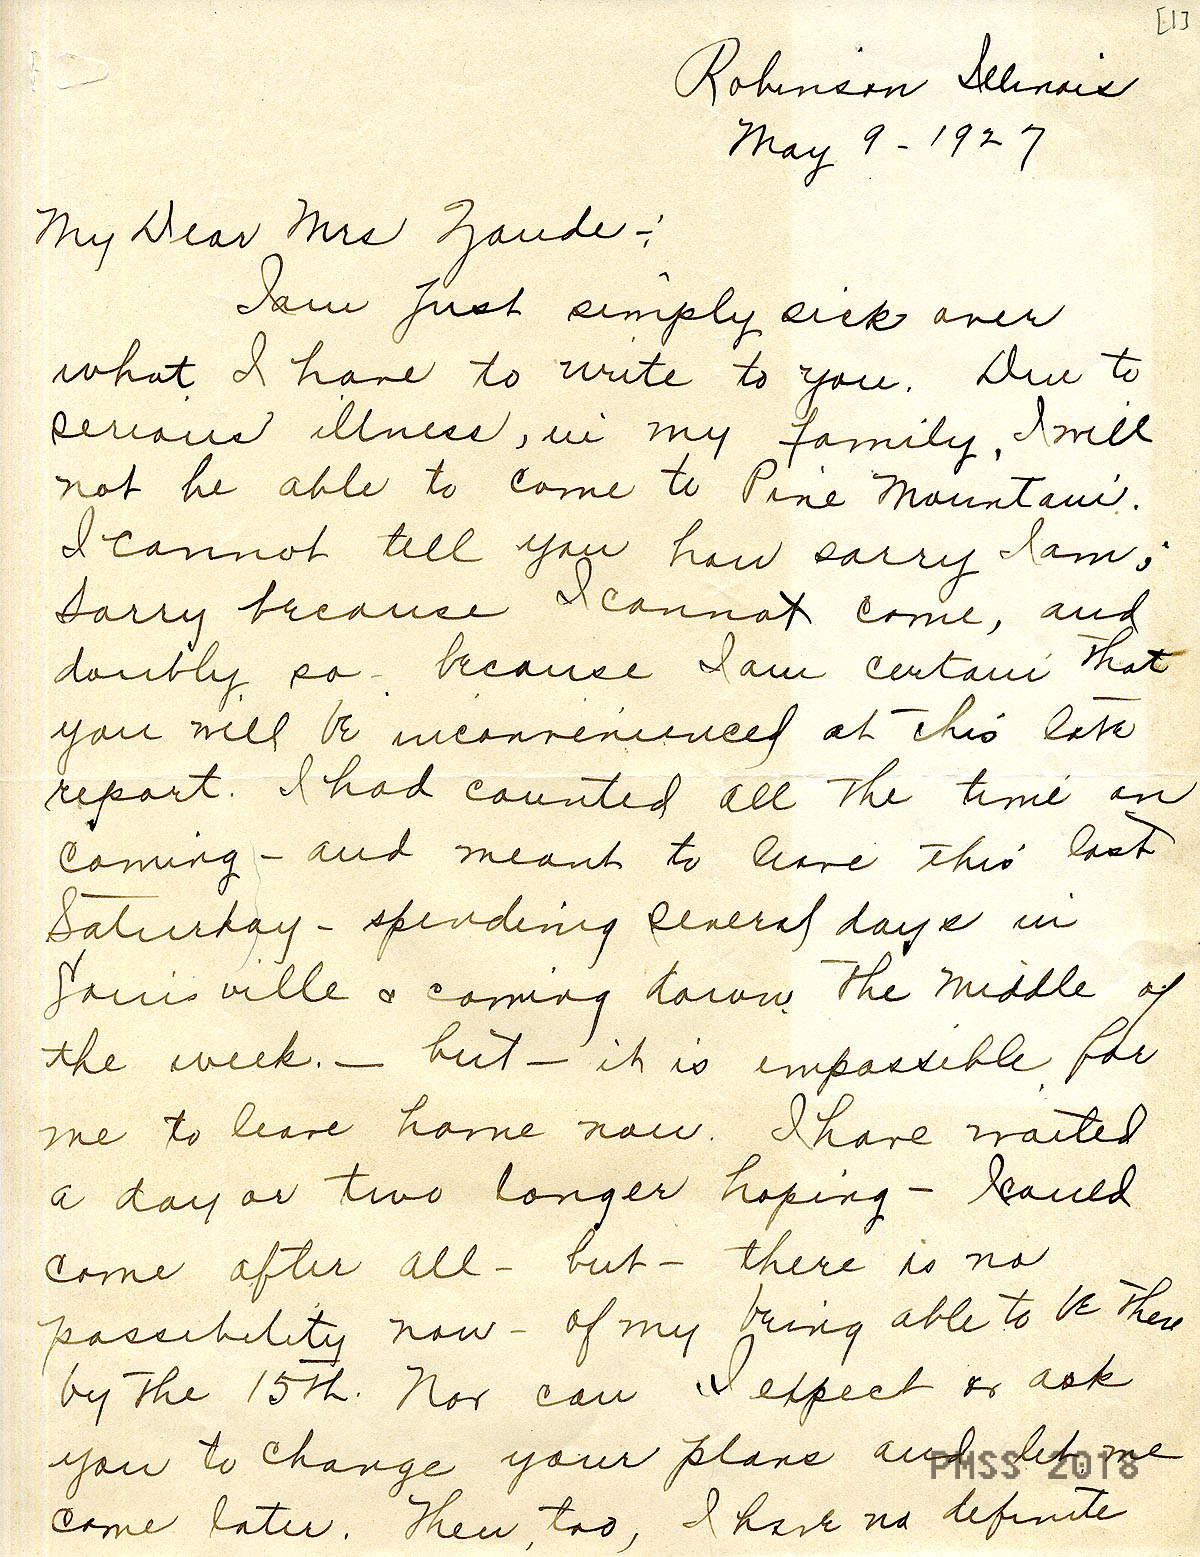 [1]
Robinson Illinois
May 9 - 1927
My Dear Mrs Zande -;
I am just simply sick over
what I have to write to you. Due to
serious illness, in my family, I will
not be able to come to Pine Mountain.
I cannot tell you how sorry I am;
sorry because I cannot come, and
doubly so - because I am certain that
you will be inconvenienced at this late
report. I had counted all the time on
coming - and meant to leave this last
Saturday - spending several days in
Louisville & coming down the middle of
the week. - but - it is impossible for
me to leave home now. I have waited
a day or two longer hoping - I could
come after all - but - there is no
possibility now - of my being able to be there
by the 15th. Nor can I expect or ask
you to change your plans and let me
come later. Then, too, I have no definite
PMSS 2018